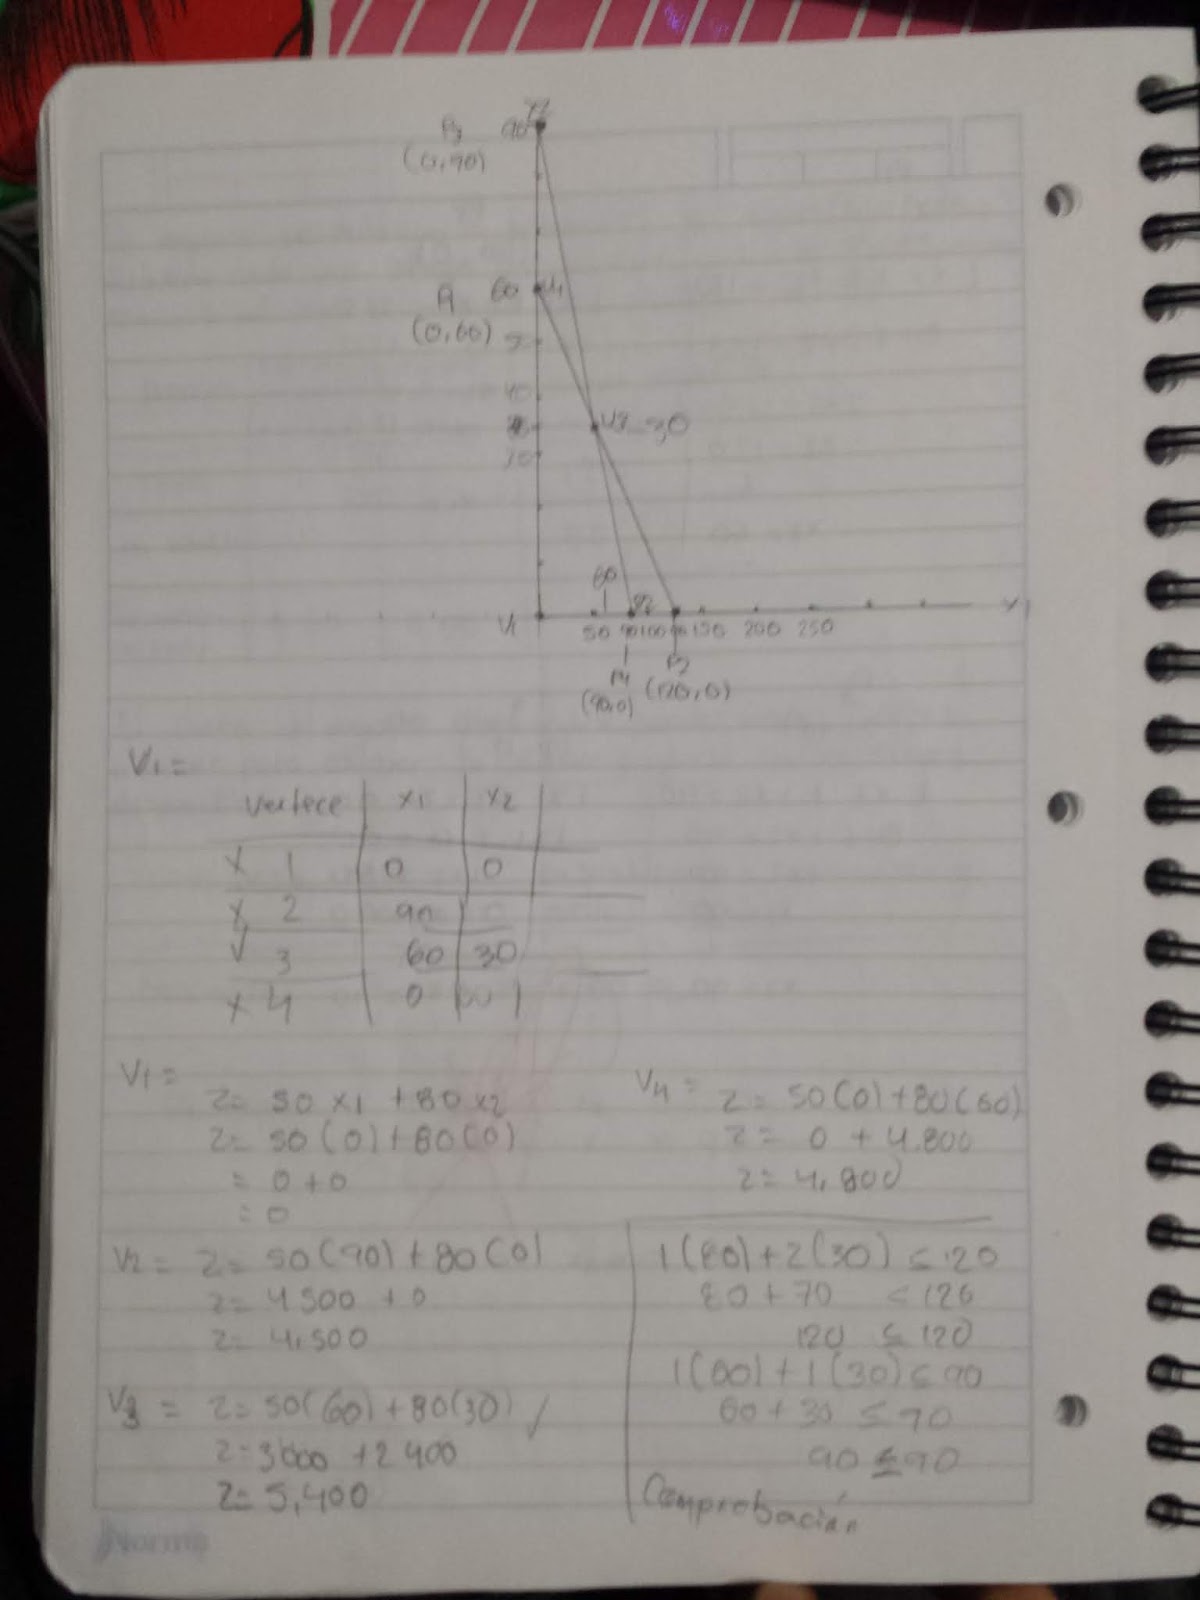 X2
P3 90
(0,90)
60 V4
(0,60)
40
V3 30
60
V1 50 90 100 150 200 250
P4 P2
(90,0) (120,0)
V1 =
Vertece X1 X2
X 1 0 0
X 2 90 0
√ 3 60 30
X 4 0
V1 =
Z= 50 X1 + 80 X2
Z= 50 (0) + 80 (0)
= 0 + 0
= 0
V2 = Z= 50 (90) + 80 (0)
Z= 4500 + 0
Z= 4,500
V3 = Z= 50(60) + 80(30) /
Z= 3000 + 2400
Z= 5,400
V4 = Z= 50(0) + 80(60)
Z= 0 + 4.800
Z= 4,800
1(60) + 2(30) ≤ 120
≤ 120
120 ≤ 120
1(60) + 1(30) ≤ 90
60 + 30 ≤ 90
90 ≤ 90
Comprobación
Norma